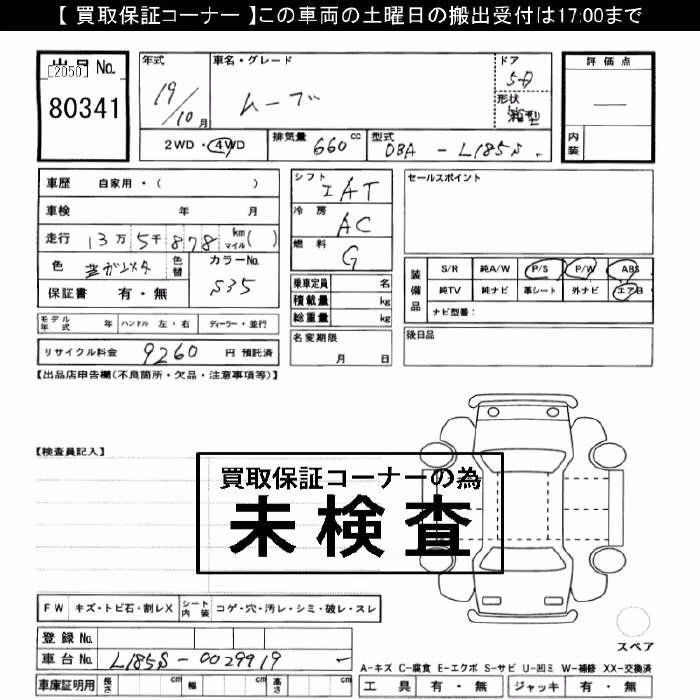 【 買取保証コーナー 】この車両の土曜日の搬出受付は17:00まで
出品No.
[2050]
80341
年式
19/10月
車名・グレード
ムーブ
ドア
5D
形状
箱型
評価点
内装
2WD・4WD
排気量 660 cc
型式 DBA - L185S
車歴 自家用・( )
車検 年 月
走行 13万5千878 km マイル( )
色
色替
カラーNo.
S35
保証書 有・無
シフト IAT
冷房 AC
燃料 G
乗車定員 名
積載量 kg
総重量 kg
セールスポイント
装備品
S/R 純A/W P/S P/W ABS
純TV 純ナビ 革シート 外ナビ エアB
ナビ型番:
モデル年式 年 ハンドル 左・右 ディーラー・並行
リサイクル料金 9260 円 預託済
名変期限
月 日
後日品
【出品店申告欄(不良箇所・欠品・注意事項等)】
【検査員記入】
買取保証コーナーの為
未検査
FW キズ・トビ石・割レX
シート内装 コゲ・穴・汚レ・シミ・破レ・スレ
スペア
登録No.
車台No. L185S-0029919
A-キズ C-腐食 E-エクボ S-サビ U-凹ミ W-補修 XX-交換済
車庫証明用 長さ cm 幅 cm 高さ cm
工具 有・無 ジャッキ 有・無